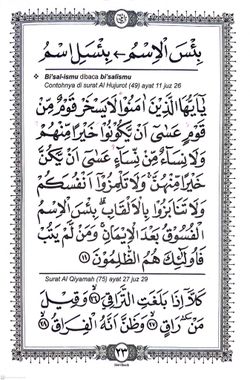 بِئْسَ الْاِسْمُ ← بِئْسَلِ سْمُ
❖ Bi'sal-ismu dibaca bi'salismu
Contohnya di surat Al Hujurot (49) ayat 11 juz 26
يٰٓاَيُّهَا الَّذِيْنَ اٰمَنُوْا لَا يَسْخَرْ قَوْمٌ مِّنْ
قَوْمٍ عَسٰٓى اَنْ يَّكُوْنُوْا خَيْرًا مِّنْهُمْ
وَلَا نِسَاۤءٌ مِّنْ نِّسَاۤءٍ عَسٰٓى اَنْ يَّكُنَّ
خَيْرًا مِّنْهُنَّۚ وَلَا تَلْمِزُوْٓا اَنْفُسَكُمْ
وَلَا تَنَابَزُوْا بِالْاَلْقَابِۗ بِئْسَ الْاِسْمُ
الْفُسُوْقُ بَعْدَ الْاِيْمَانِۚ وَمَنْ لَّمْ يَتُبْ
فَاُولٰۤىِٕكَ هُمُ الظّٰلِمُوْنَ ⑪
Surat Al Qiyamah (75) ayat 27 juz 29
كَلَّآ اِذَا بَلَغَتِ التَّرَاقِيَ ٢٦ وَقِيْلَ
مَنْ رَاقٍ ٢٧ وَظَنَّ اَنَّهُ الْفِرَاقُ ٢٨
٢٣